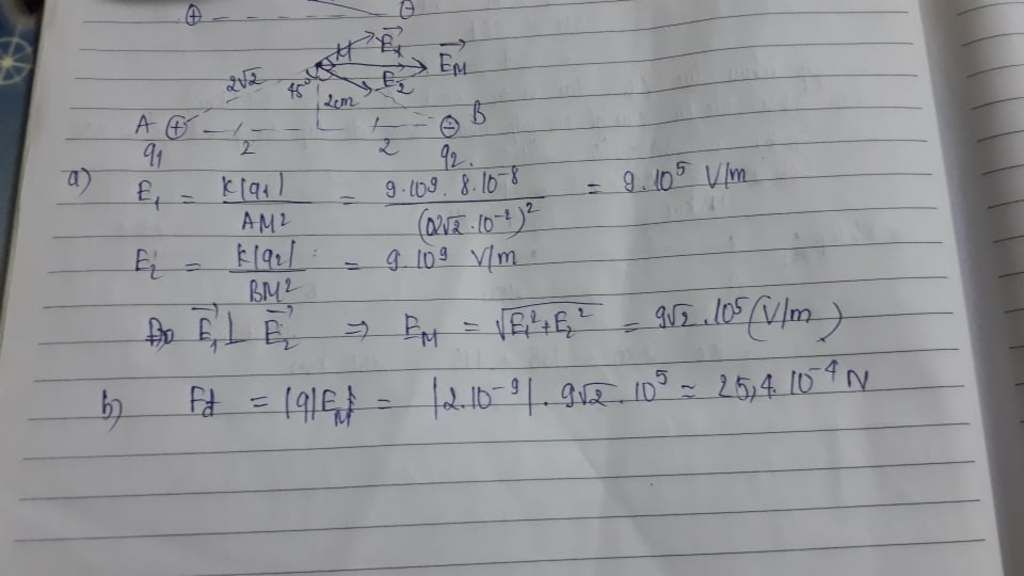 ⊕ ⊖
M E₁→
E_M→
2√2 45° E₂
2cm
A ⊕ ⊖ B
q₁ 2 2 q₂.
a) E₁ = K|q₁| / AM² = 9.10⁹. 8.10⁻⁸ / (2√2.10⁻²)² = 9.10⁵ V/m
E₂ = K|q₂| / BM² = 9.10⁹ V/m
Do E₁→ ⊥ E₂→ ⇒ E_M = √(E₁²+E₂²) = 9√2.10⁵ (V/m)
b) Fđ = |q|E_M = |2.10⁻⁹|. 9√2.10⁵ = 25,4.10⁻⁴ N